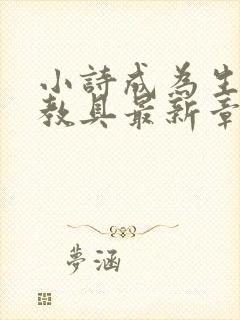 小詩成為生
教具最新章
夢涵